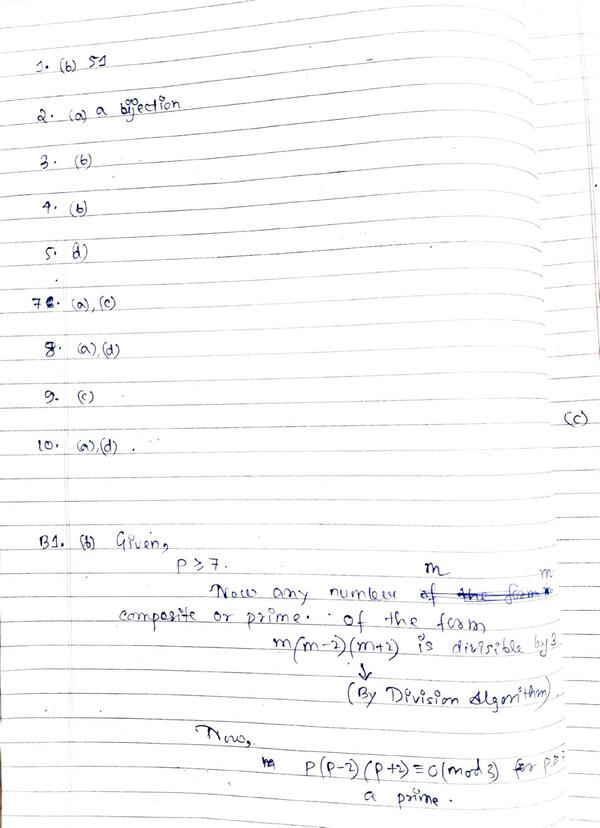 1. (b) 51
2. (a) a bijection
3. (b)
4. (b)
5. (d)
7. (a), (c)
8. (a), (d)
9. (c)
(c)
10. (a), (d) .
B1. (b) Given,
P ≥ 7.
m m
Now any number of the form
composite or prime. of the form
m(m-2)(m+2) is divisible by 3
↓
(By Division Algorithm).
Now,
P(P-2)(P+2) ≡ 0(mod 3) for
a prime.